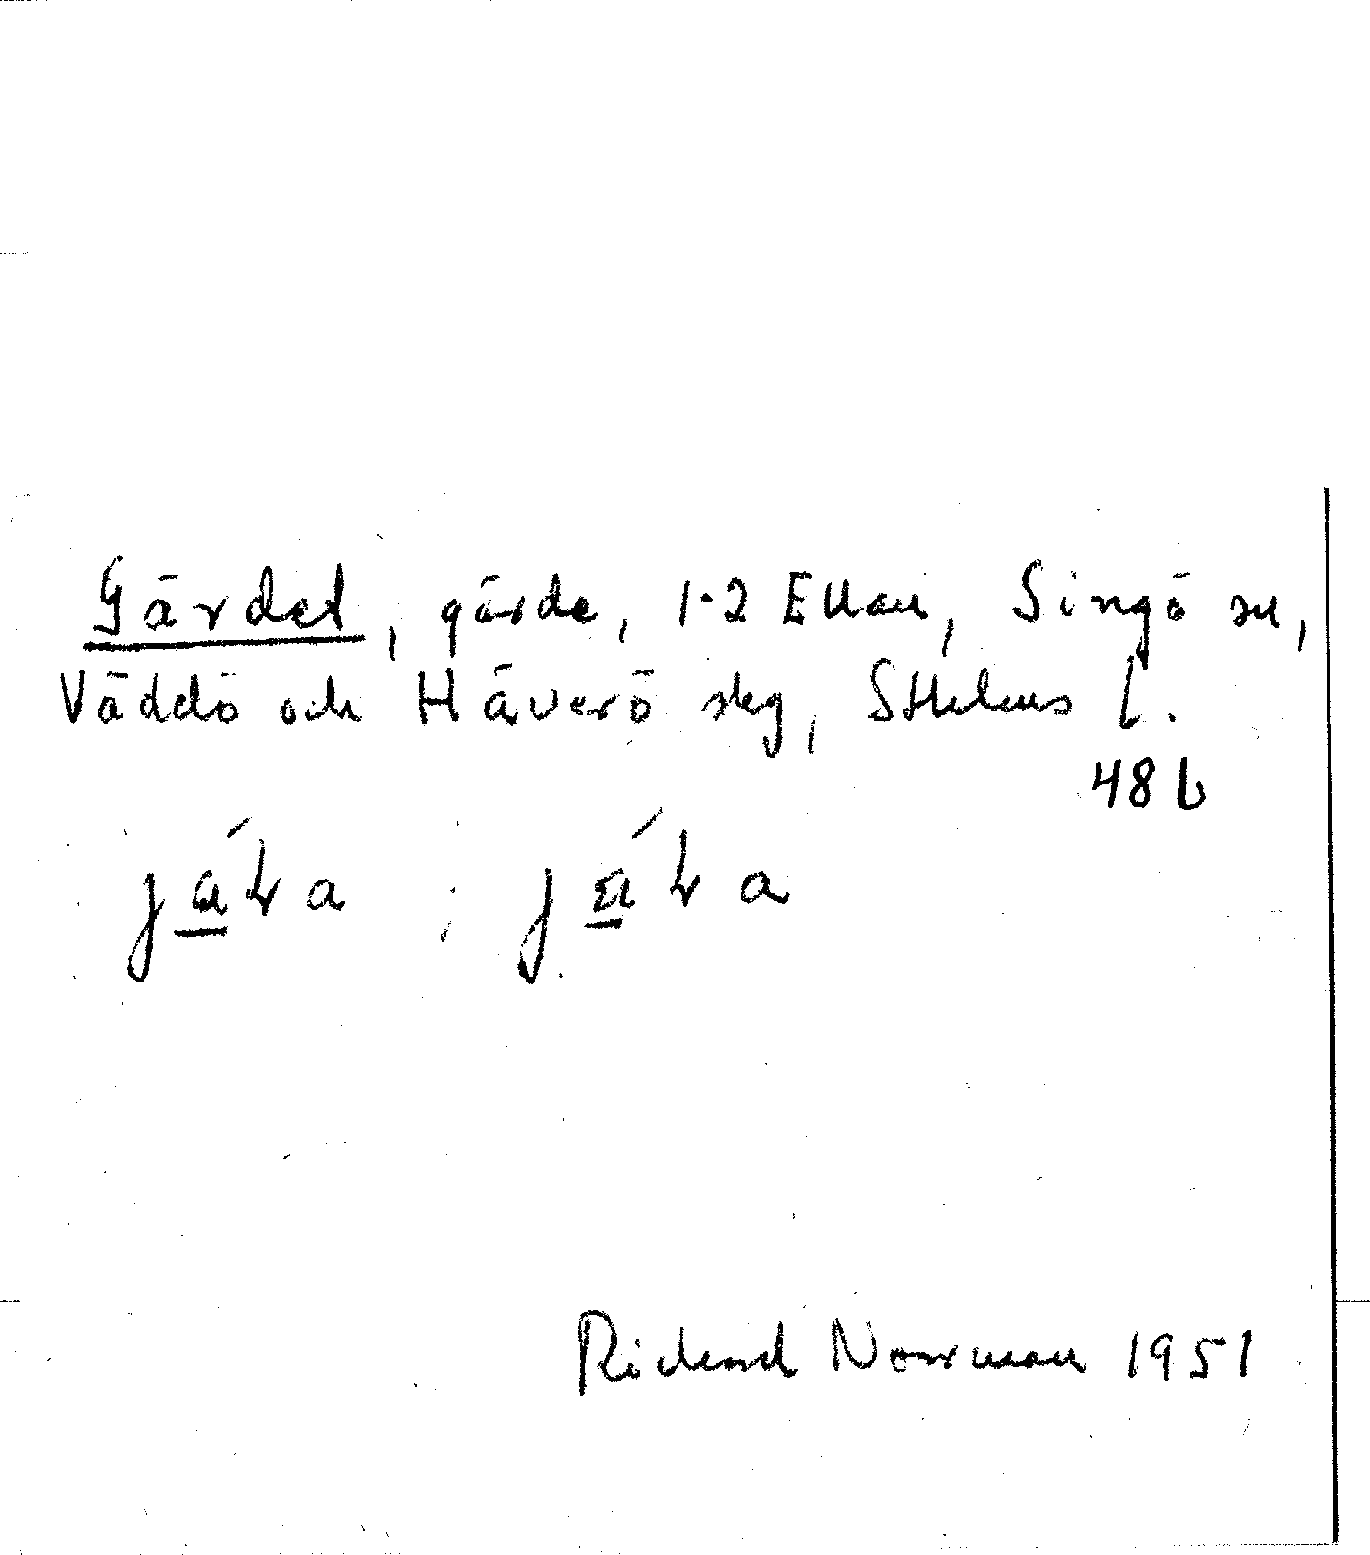 Gärdet, gärde, 1-2 Ellan, Singö sn,
Väddö och Häverö skg, Sthlms l.
48 b
Richard Norman 1951